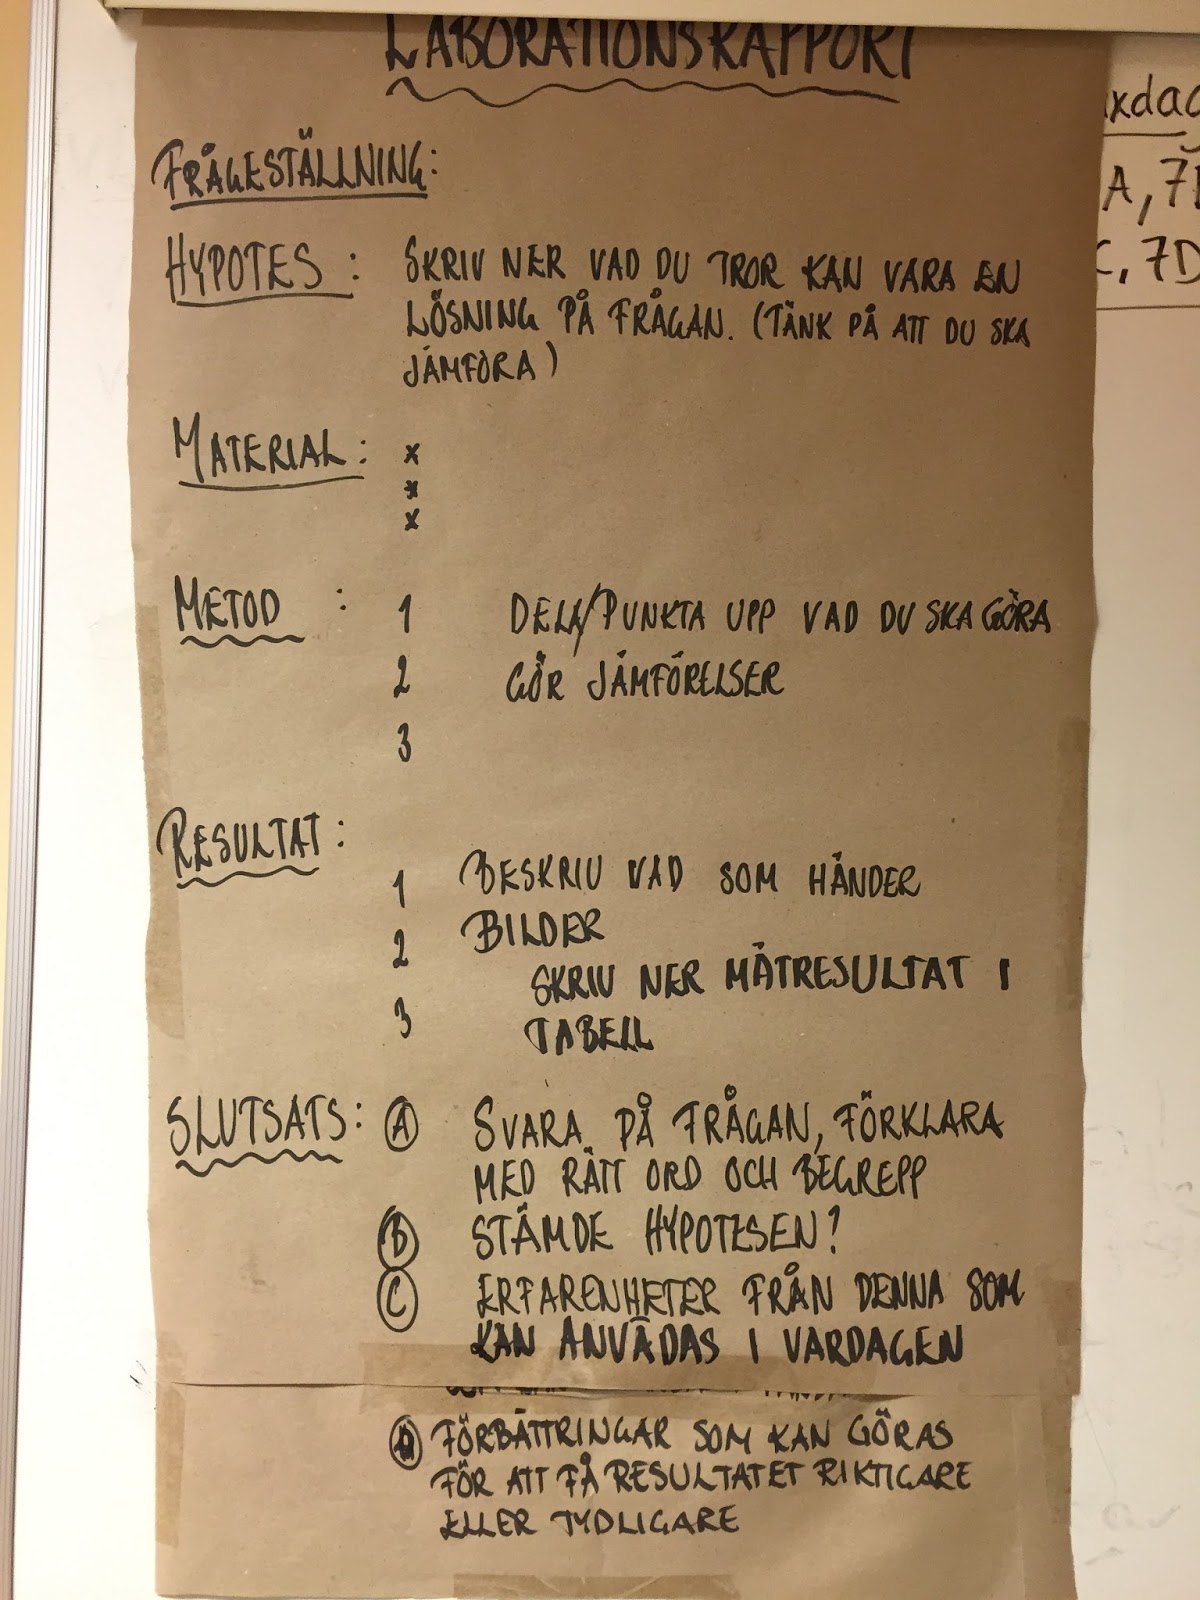 LABORATIONSRAPPORT
FRÅGESTÄLLNING:
HYPOTES: SKRIV NER VAD DU TROR KAN VARA EN
LÖSNING PÅ FRÅGAN. (TÄNK PÅ ATT DU SKA
JÄMFÖRA)
MATERIAL: x
x
x
METOD : 1 DELA/PUNKTA UPP VAD DU SKA GÖRA
2 GÖR JÄMFÖRELSER
3
RESULTAT:
1 BESKRIV VAD SOM HÄNDER
2 BILDER
SKRIV NER MÄTRESULTAT I
3 TABELL
SLUTSATS: A SVARA PÅ FRÅGAN, FÖRKLARA
MED RÄTT ORD OCH BEGREPP
B STÄMDE HYPOTESEN?
C ERFARENHETER FRÅN DENNA SOM
KAN ANVÄDAS I VARDAGEN
D FÖRBÄTTRINGAR SOM KAN GÖRAS
FÖR ATT FÅ RESULTATET RIKTIGARE
ELLER TYDLIGARE
xdag
A, 7B
C, 7D